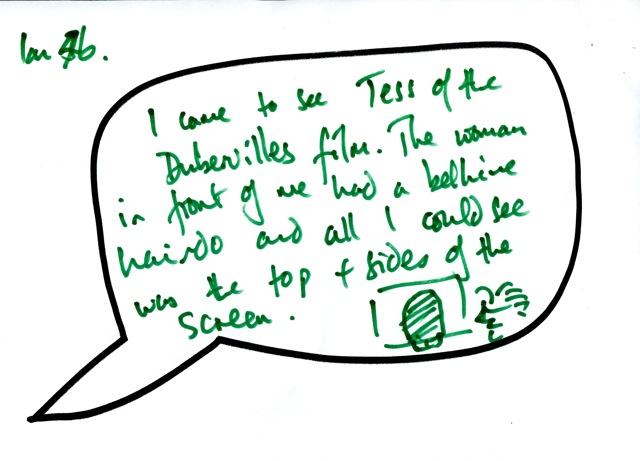 Ian 46.
I came to see Tess of the
Dubervilles film. The woman
in front of me had a behhive
hairdo and all I could see
was the top & sides of the
screen.